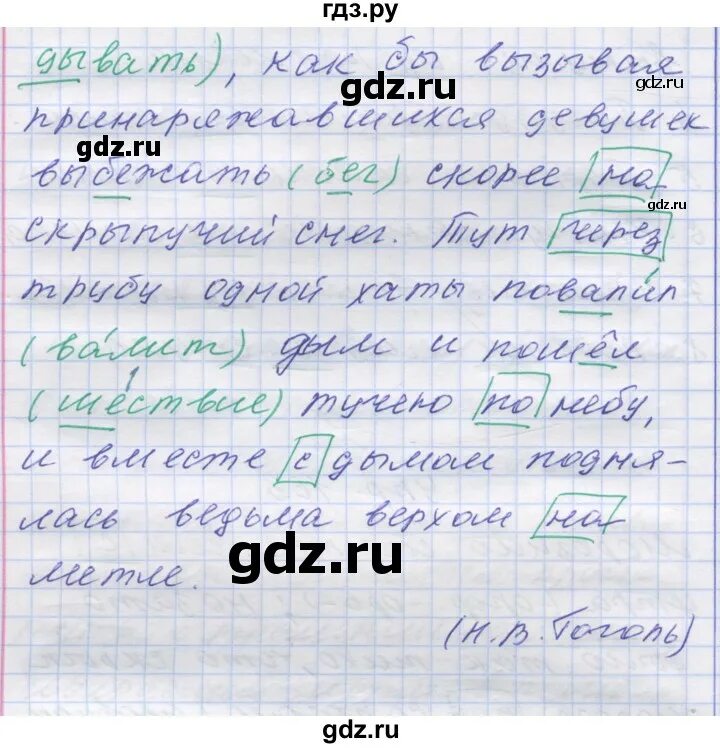 гдз.ру
дывать), как бы вызывая
gdz.ru
gdz.ru
принаряжавшихся девушек
gdz.ru
выбежать (бег) скорее на
gdz.ru
скрыпучий снег. Тут через
трубу одной хаты повали́л
(ва́лит) дым и пошёл
(ше́ствие) тучею по небу,
и вместе с дымом подня-
лась ведьма верхом на
gdz.ru
метле.
(Н. В. Гоголь)
gdz.ru